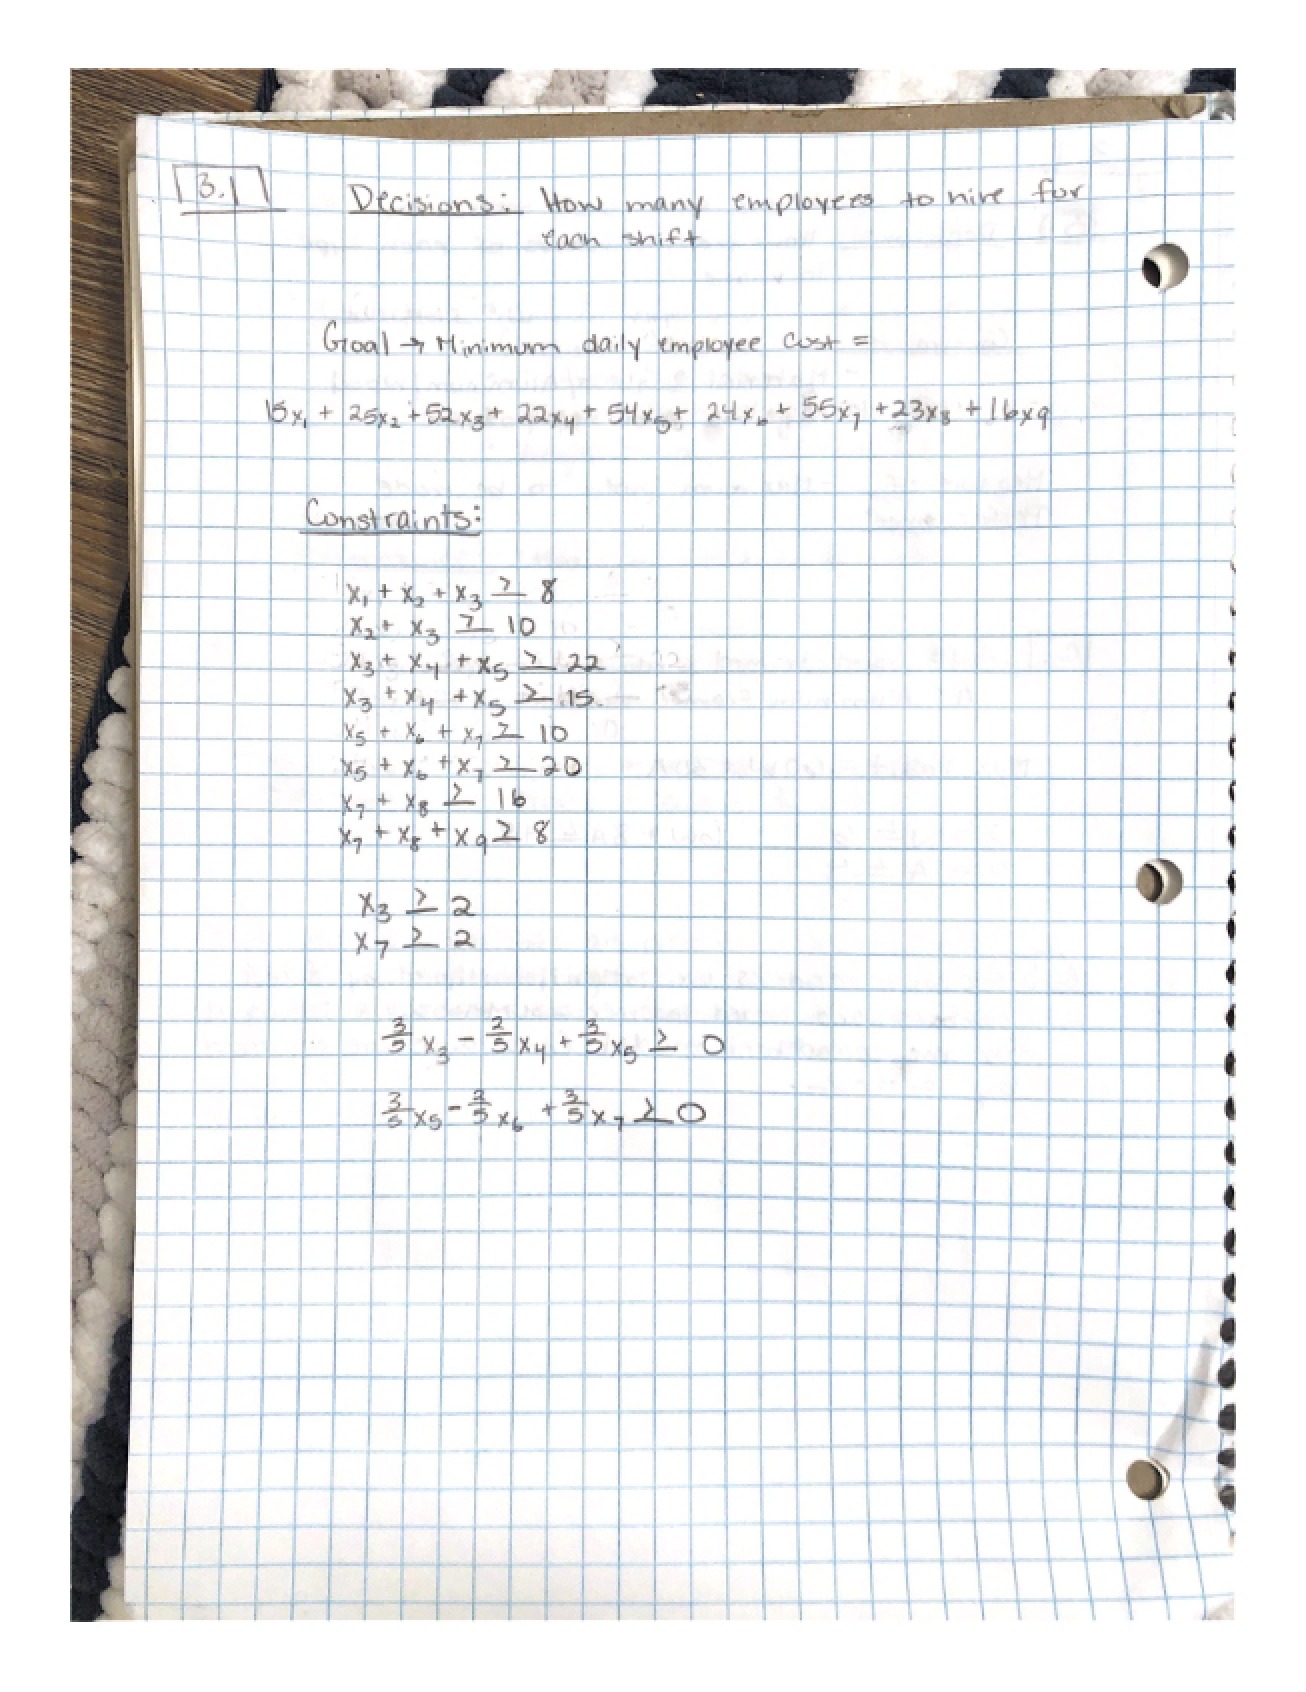 3.1
Decisions: How many employees to hire for
each shift
Goal → Minimum daily employee cost =
15x₁ + 25x₂ + 52x₃ + 22x₄ + 54x₅ + 24x₆ + 55x₇ + 23x₈ + 16x₉
Constraints:
x₁ + x₂ + x₃ ≥ 8
x₂ + x₃ ≥ 10
x₃ + x₄ + x₅ ≥ 22
x₃ + x₄ + x₅ ≥ 15
x₅ + x₆ + x₇ ≥ 10
x₅ + x₆ + x₇ ≥ 20
x₇ + x₈ ≥ 16
x₇ + x₈ + x₉ ≥ 8
x₃ ≥ 2
x₇ ≥ 2
3/5 x₃ - 2/5 x₄ + 3/5 x₅ ≥ 0
3/5 x₅ - 2/5 x₆ + 3/5 x₇ ≥ 0